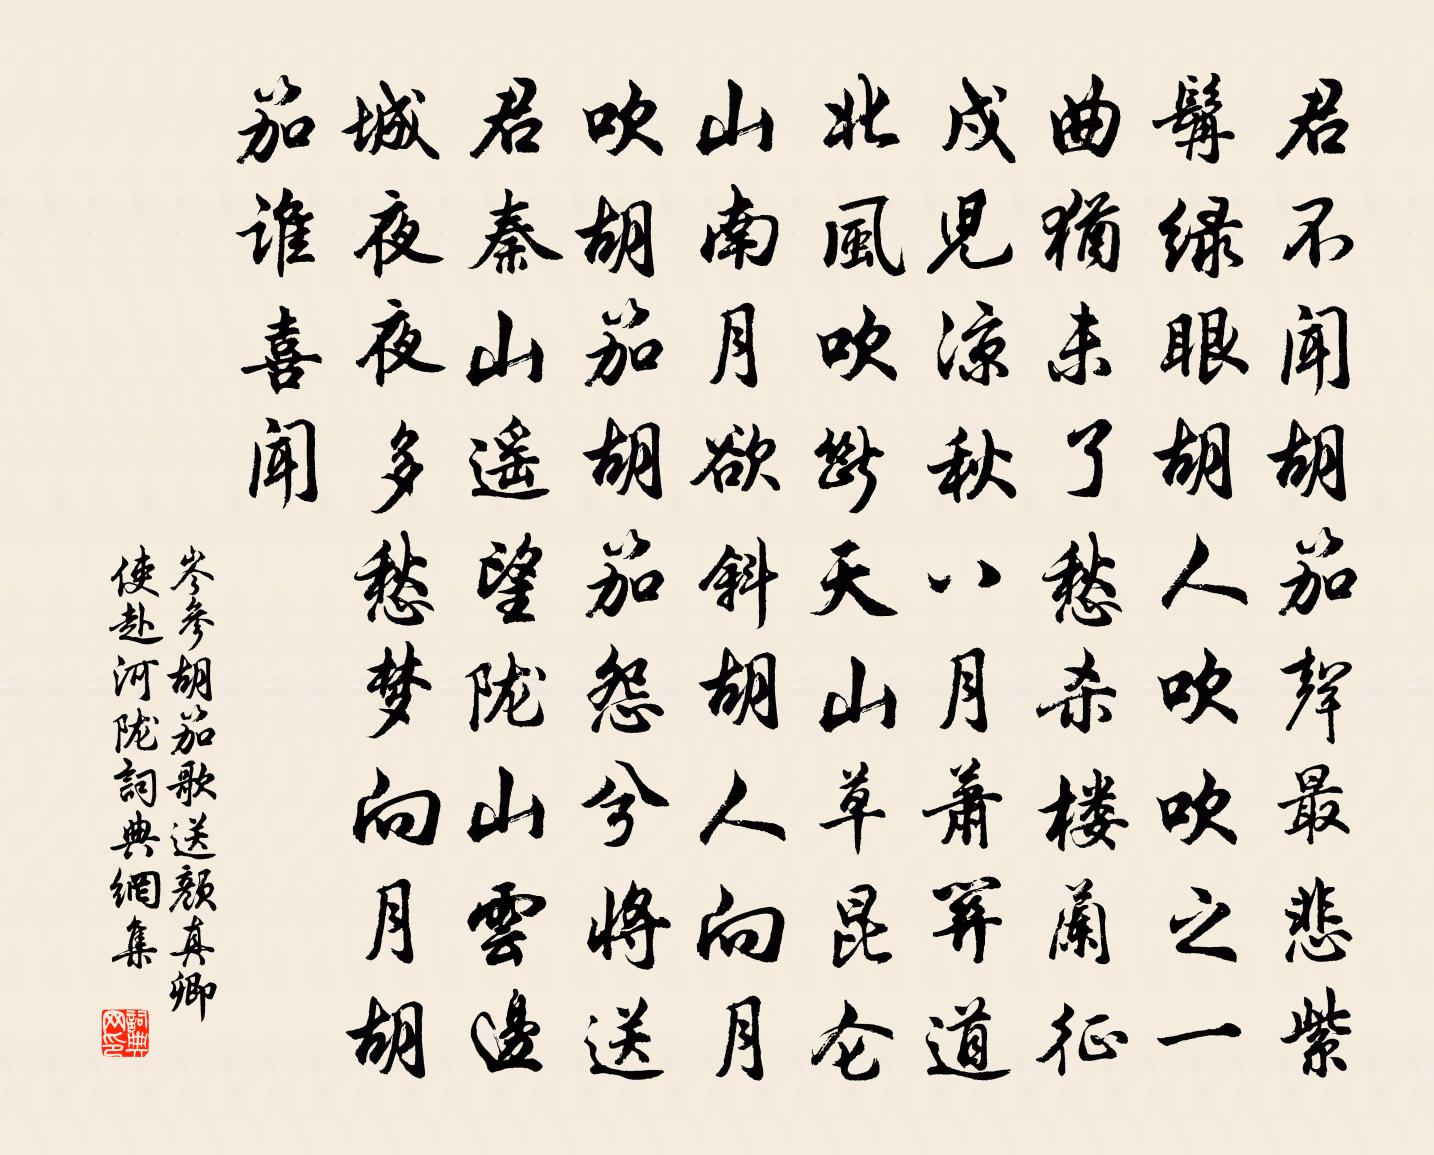 君不闻胡笳聲最悲紫
髯绿眼胡人吹吹之一
曲猶未了愁杀楼蘭征
戍兒涼秋八月萧關道
北風吹斷天山草昆仑
山南月欲斜胡人向月
吹胡笳胡笳怨兮將送
君秦山遥望陇山雲邊
城夜夜多愁梦向月胡
笳谁喜闻
岑參胡笳歌送顏真卿
使赴河陇詞典網集
詞典
网印